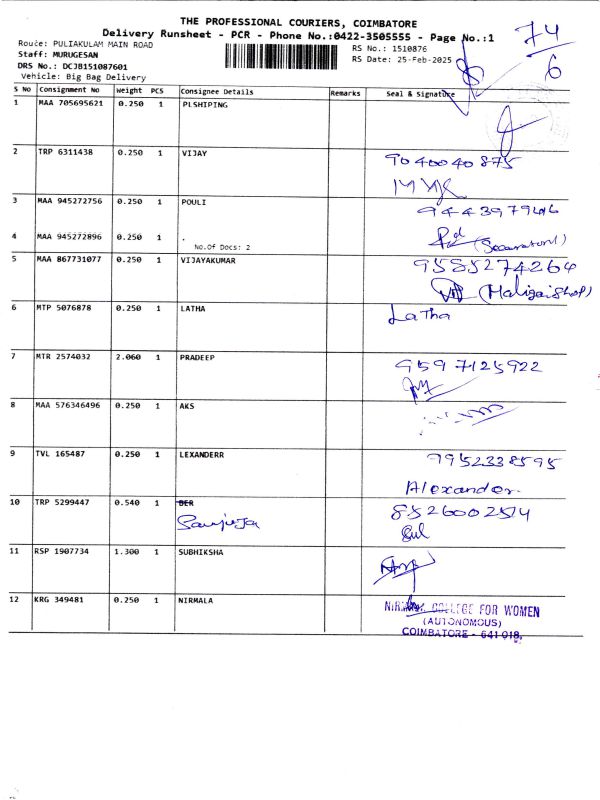 THE PROFESSIONAL COURIERS, COIMBATORE
Delivery Runsheet - PCR - Phone No.:0422-3505555 - Page No.:1
74
6
Route: PULIAKULAM MAIN ROAD
RS No.: 1510876
Staff: MURUGESAN
RS Date: 25-Feb-2025
DRS No.: DCJB151087601
Vehicle: Big Bag Delivery
S No Consignment No Weight PCS Consignee Details Remarks Seal & Signature
1 MAA 705695621 0.250 1 PLSHIPING
2 TRP 6311438 0.250 1 VIJAY 9040040875
3 MAA 945272756 0.250 1 POULI
4 MAA 945272896 0.250 1 .
No.Of Docs: 2
5 MAA 867731077 0.250 1 VIJAYAKUMAR 9585274264
(Maligai shop)
6 MTP 5076878 0.250 1 LATHA Latha
7 MTR 2574032 2.060 1 PRADEEP 9597125922
8 MAA 576346496 0.250 1 AKS
9 TVL 165487 0.250 1 LEXANDERR 9952338595
Alexander.
10 TRP 5299447 0.540 1 BER
11 RSP 1907734 1.300 1 SUBHIKSHA
12 KRG 349481 0.250 1 NIRMALA NIRMALA COLLEGE FOR WOMEN
(AUTONOMOUS)
COIMBATORE - 641 018.